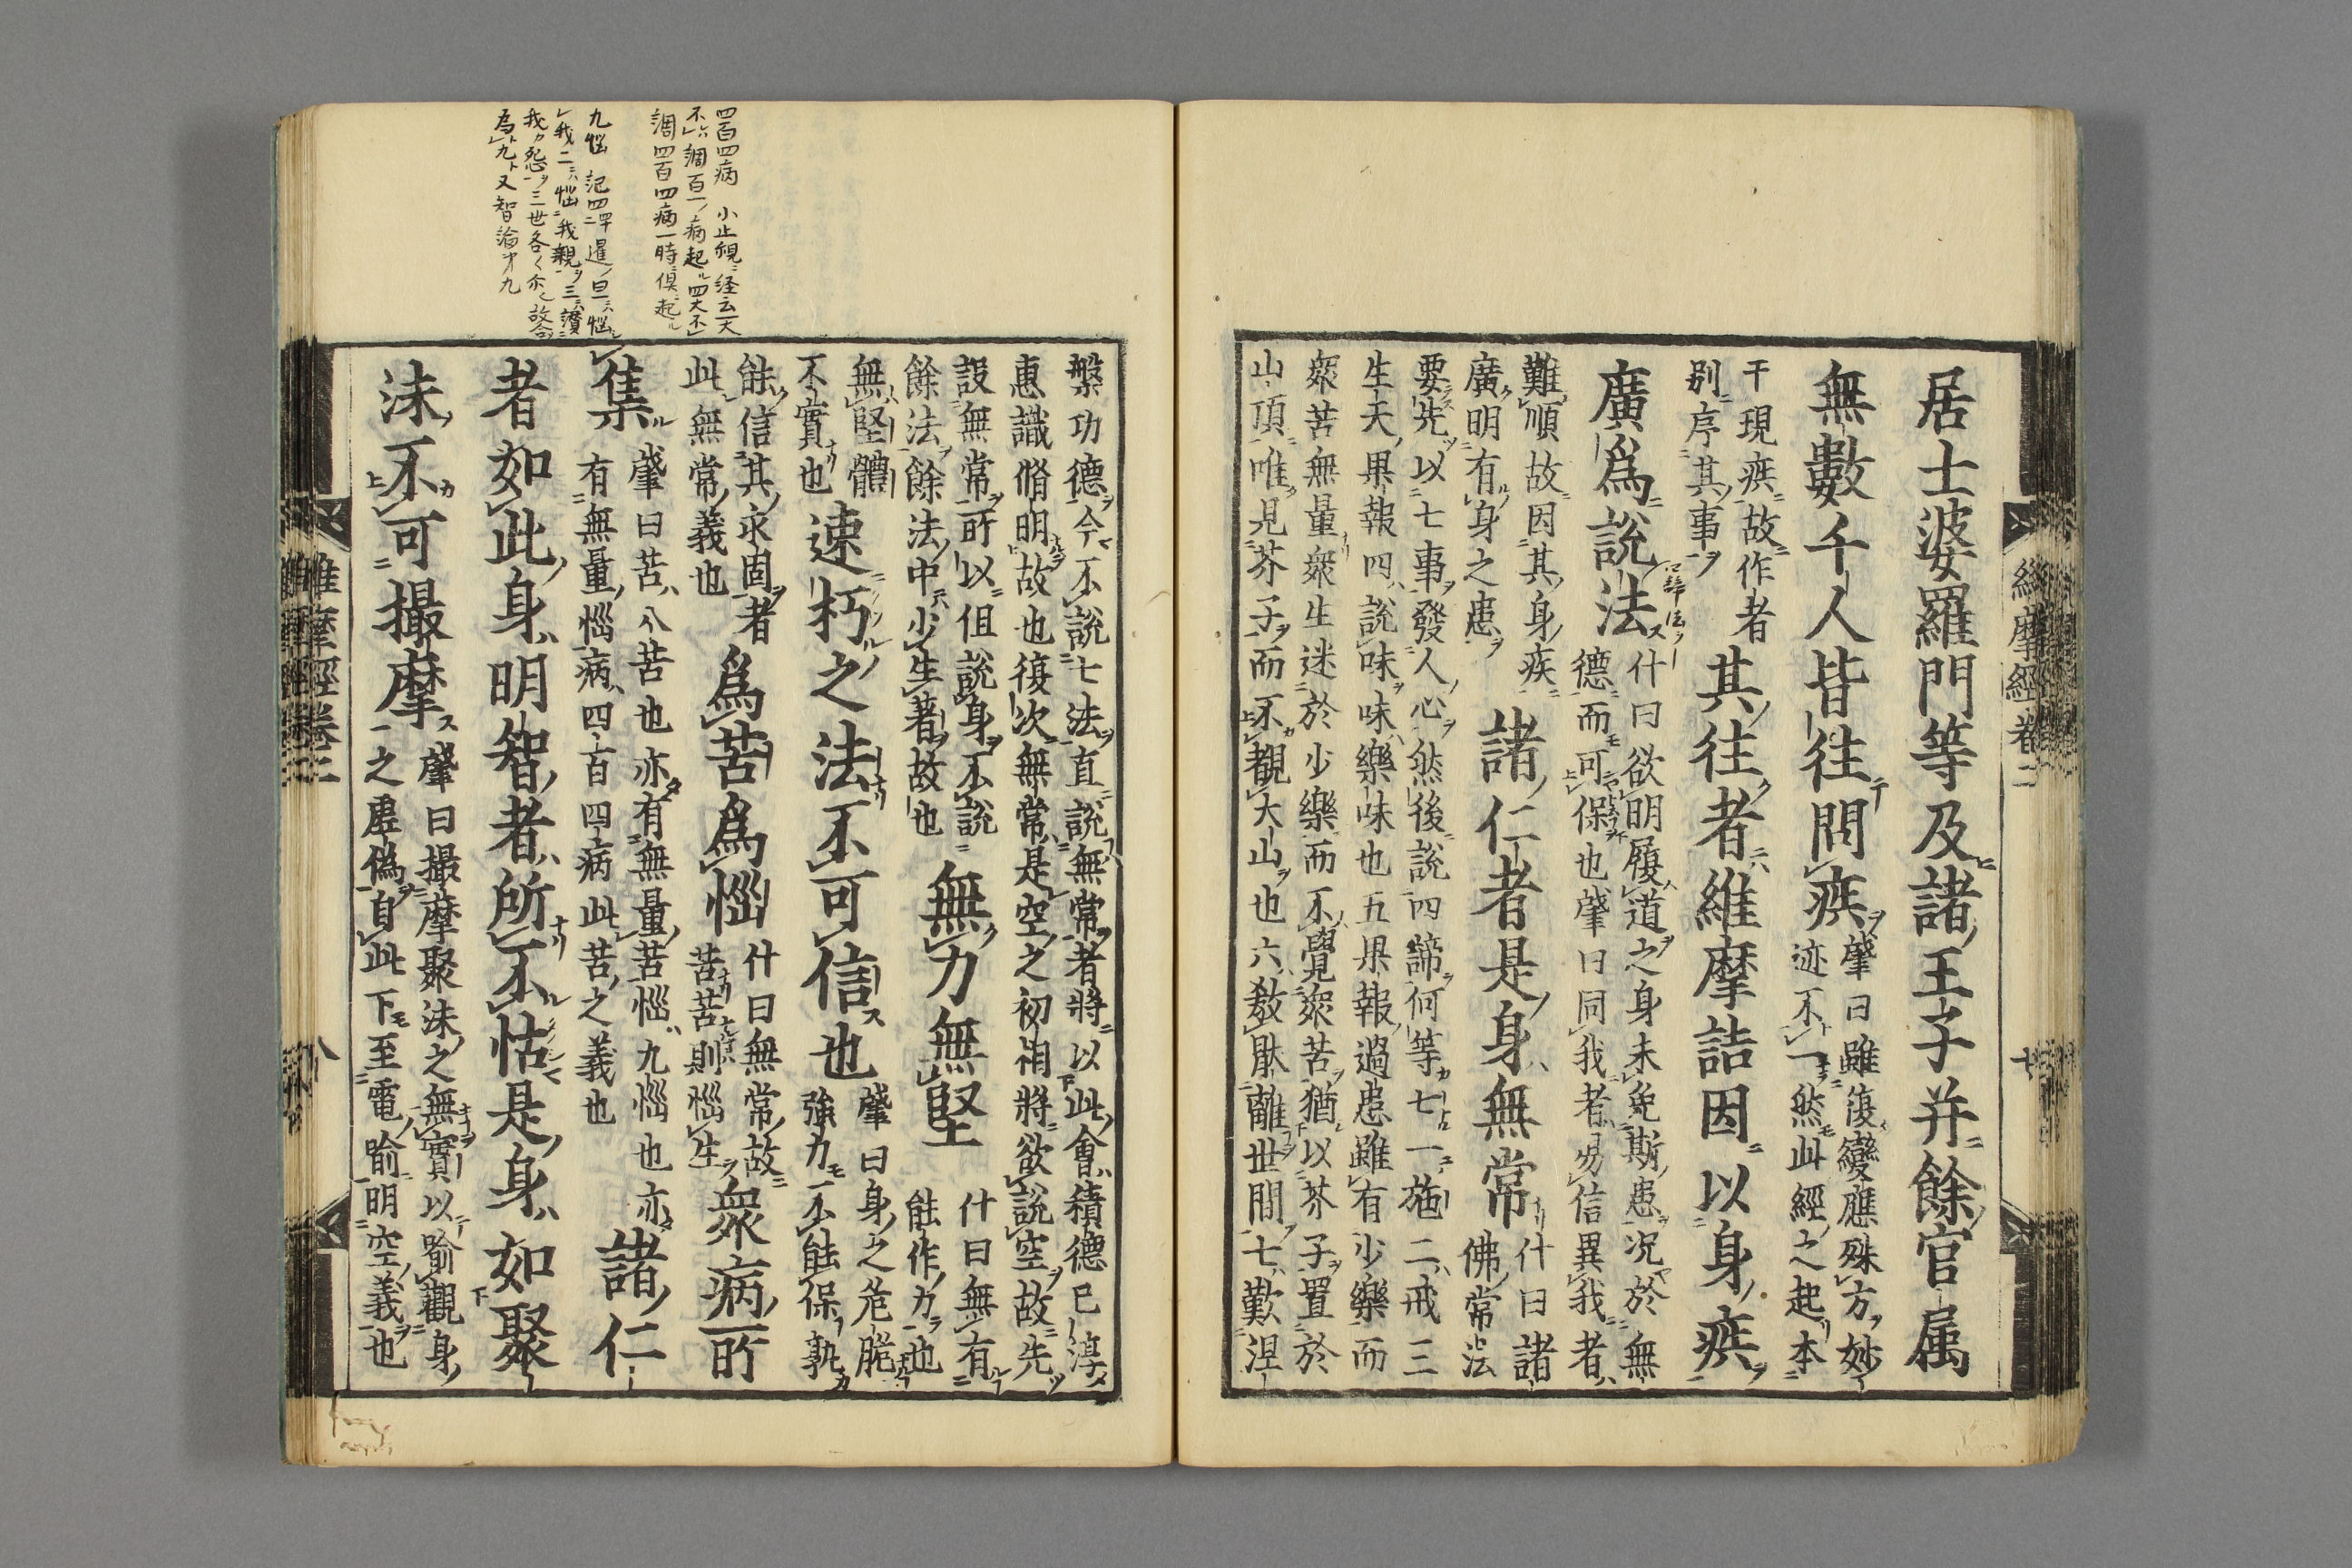 居士婆羅門等及諸王子并餘官属
無數千人皆往問疾
肇曰雖復變應殊方妙
迹不一然此經之起本
于現疾故作者
別序其事
其往者維摩詰因以身疾
廣爲說法
什曰欲明履道之身未免斯患况於無
德而可保也肇曰同我者易信異我者
難順故因其身疾
廣明有身之患
諸仁者是身無常
什曰諸
佛常法
要先以七事發人心然後說四諦何等七一施二戒三
生天果報四說味味樂味也五果報過患雖有少樂而
衆苦無量衆生迷於少樂而不覺衆苦猶以芥子置於
山頂唯見芥子而不覩大山也六教厭離世間七歎涅
維摩經卷二
七
槃功德今不說七法直說無常者將以此會積德已淳
惠識脩明故也復次無常是空之初相將欲說空故先
設無常所以但說身不說
餘法餘法中少生著故也
無力無堅
什曰無有
能作力也
無堅體
不實也
速朽之法不可信也
肇曰身之危脆
強力不能保孰
能信其永固者
此無常義也
爲苦爲惱
什曰無常故
苦苦則惱生
衆病所
集
肇曰苦八苦也亦有無量苦惱九惱也亦
有無量惱病四百四病此苦之義也
諸仁
者如此身明智者所不怙是身如聚
沫不可撮摩
肇曰撮摩聚沫之無實以喻觀身
之虛偽自此下至電喻明空義也
維摩經卷二
八
四百四病 小止觀ニ経云一大
不ハ調百一ノ病起ル四大不
調四百四病一時ニ俱ニ起ル
我カ怨ヲ三世各〻
為九ト又智論